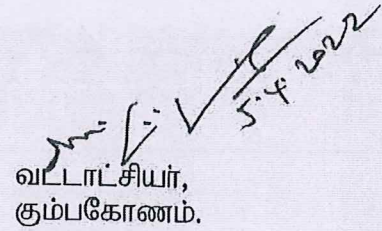 5.4.2022
வட்டாட்சியர்,
கும்பகோணம்.